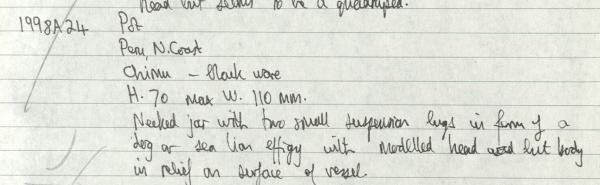 head but seems to be a quadruped.
1998A24 Pot
Peru, N. Coast
Chimu - black ware
H. 70 max W. 110 mm.
Necked jar with two small suspension lugs in form of a
dog or sea lion effigy with modelled head and but body
in relief on surface of vessel.